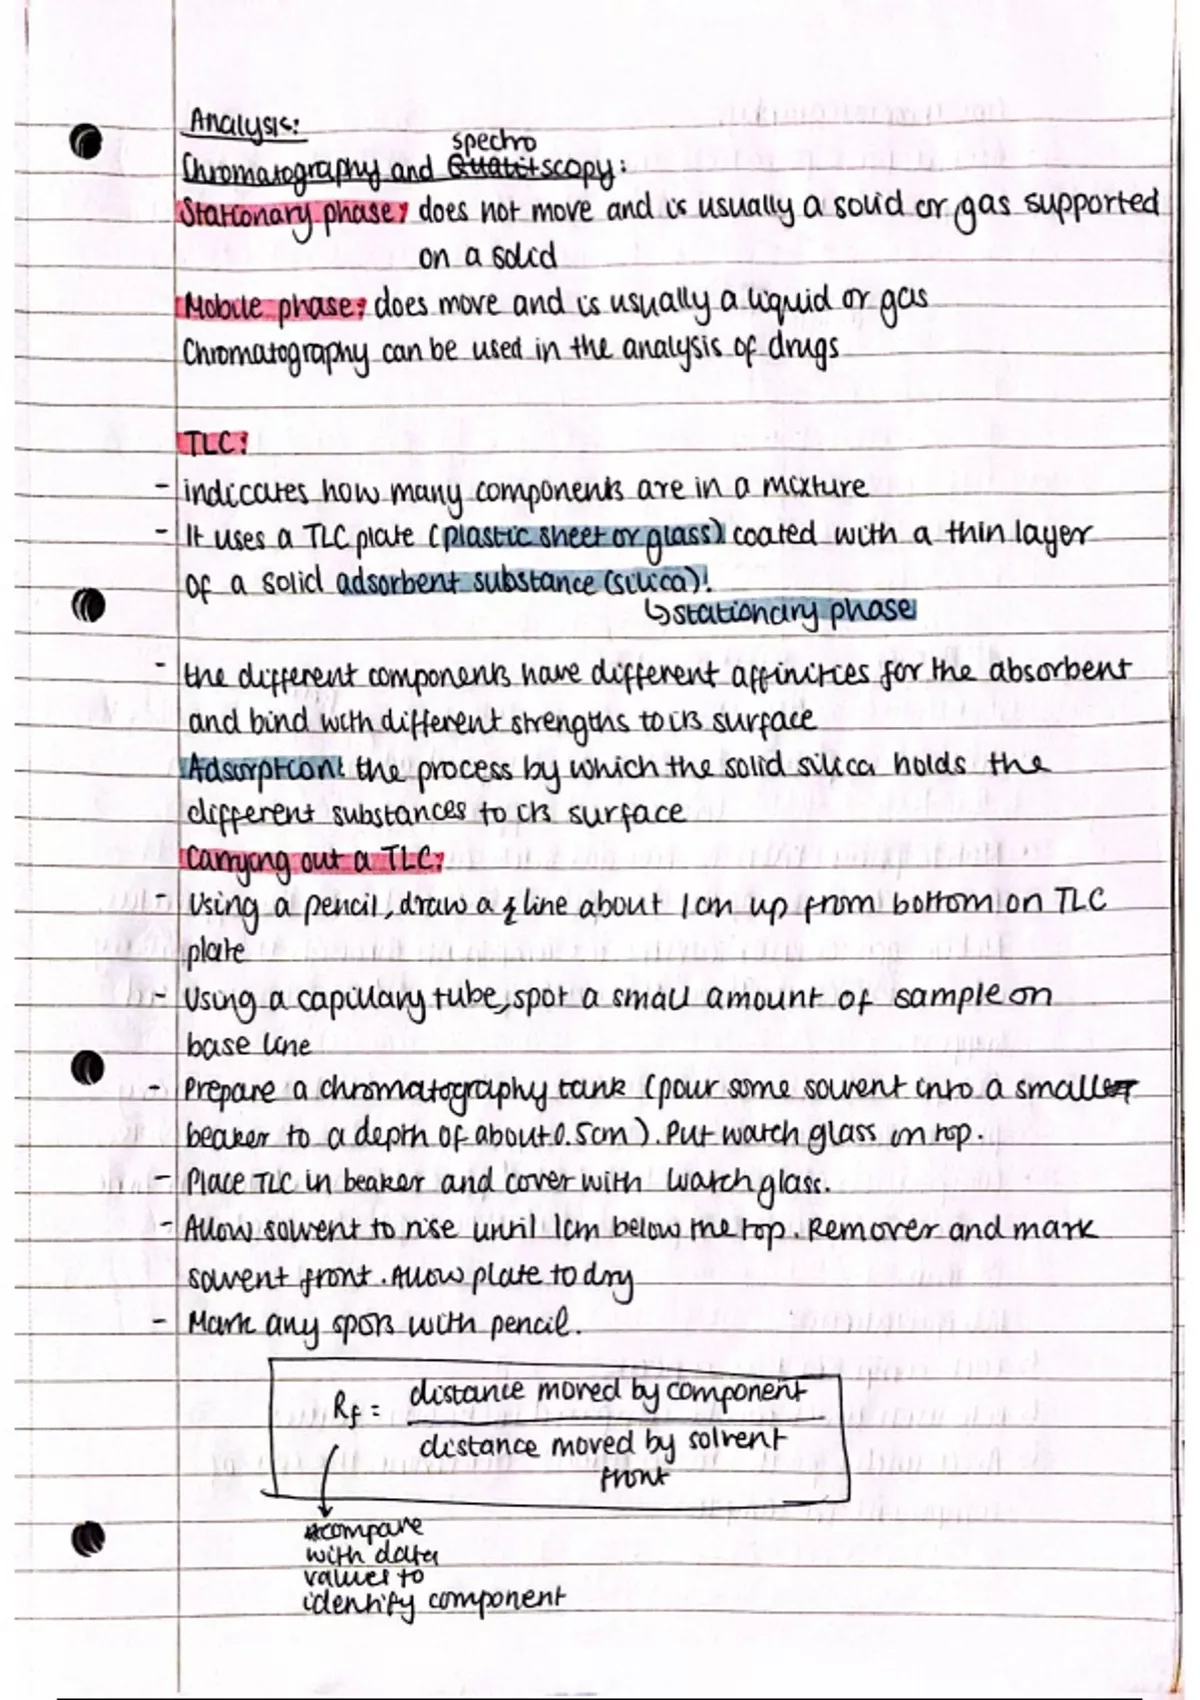 Analysis:
spectro
Chromatography and Quatitscopy:
Stationary phase: does not move and is usually a solid or gas supported
on a solid
Mobile phase: does move and is usually a liquid or gas
Chromatography can be used in the analysis of drugs
TLC:
- indicates how many components are in a mixture
- It uses a TLC plate (plastic sheet or glass) coated with a thin layer
of a solid adsorbent substance (silica).
↳ stationary phase
- the different components have different affinities for the absorbent
and bind with different strengths to its surface
Adsorption: the process by which the solid silica holds the
different substances to its surface
Carrying out a TLC:
- Using a pencil, draw a line about 1cm up from bottom on TLC
plate
- Using a capillary tube, spot a small amount of sample on
base line
- Prepare a chromatography tank (pour some solvent into a smaller
beaker to a depth of about 0.5cm). Put watch glass on top.
- Place TLC in beaker and cover with watch glass.
- Allow solvent to rise until 1cm below the top. Remover and mark
solvent front. Allow plate to dry
- Mark any spots with pencil.
Rf = distance moved by component
distance moved by solvent
front
compare
with data
values to
identify component